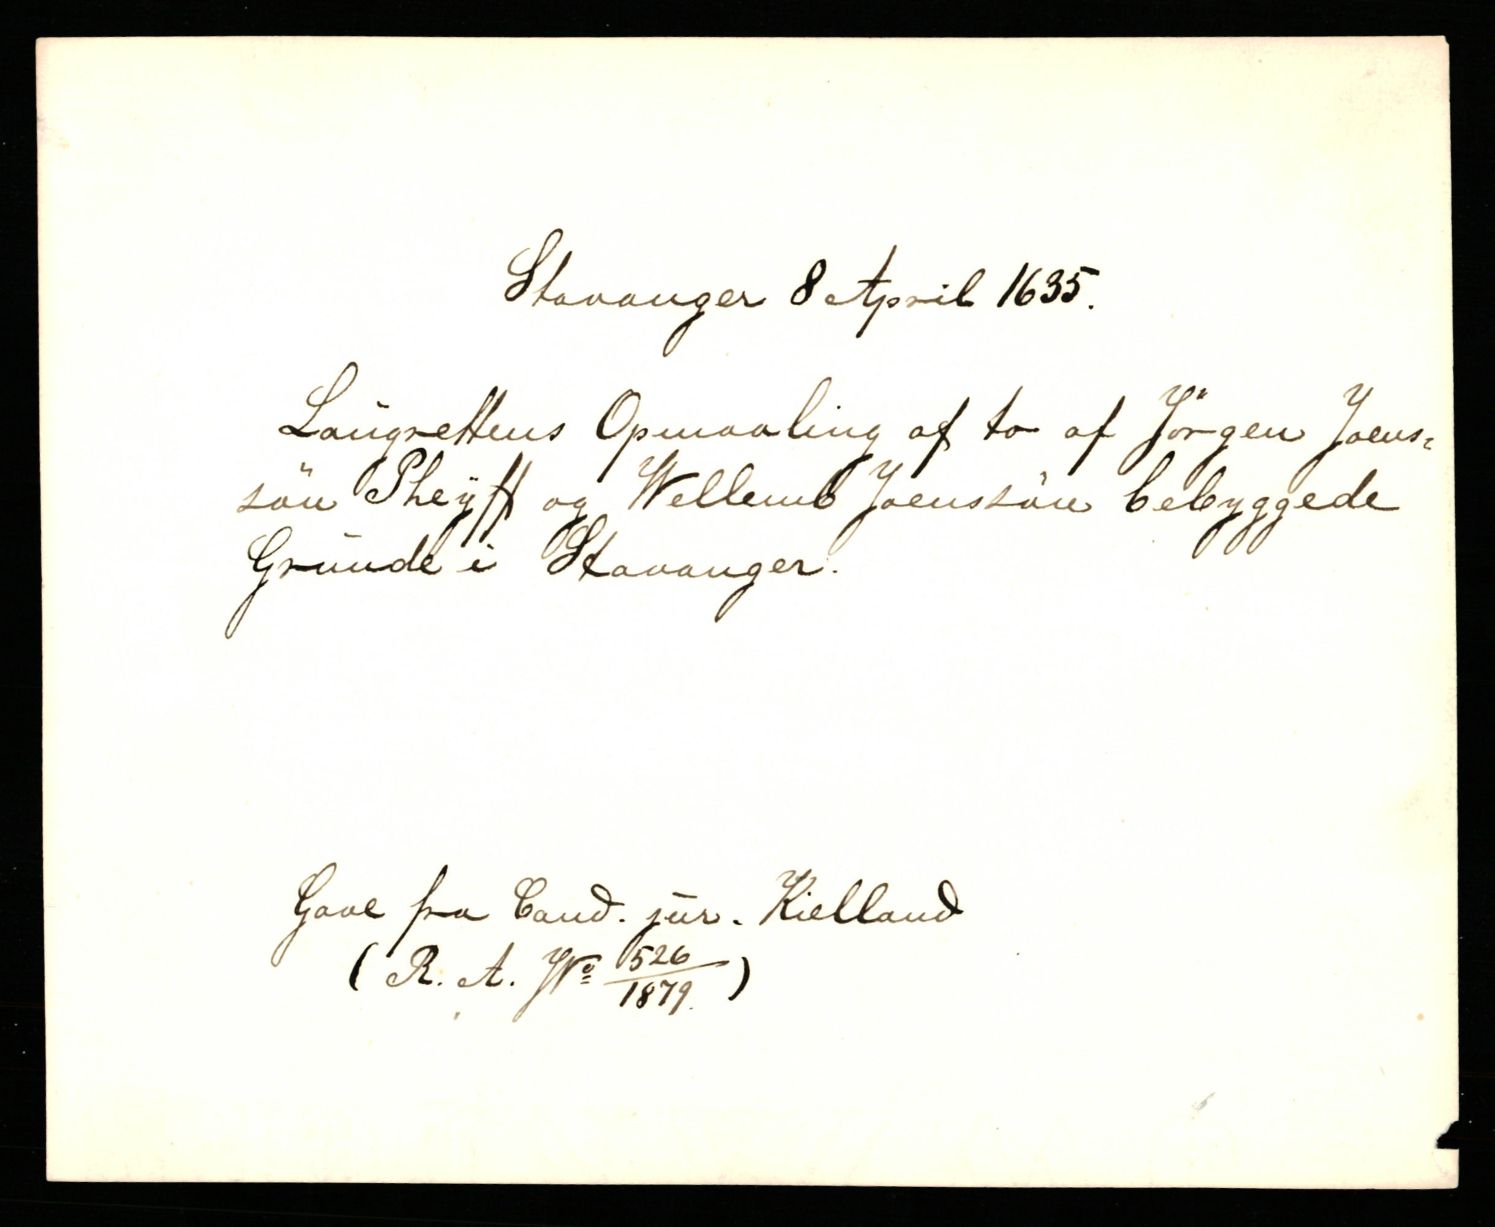 Stavanger 8 April 1635.
Laugrettens Opmaaling af to af Jörgen Joens-
sön Pheÿff og Wellemb Joenssön bebyggede
Grunde i Stavanger.
Gave fra Cand. jur. Kielland
(R. A. No 526/1879.)